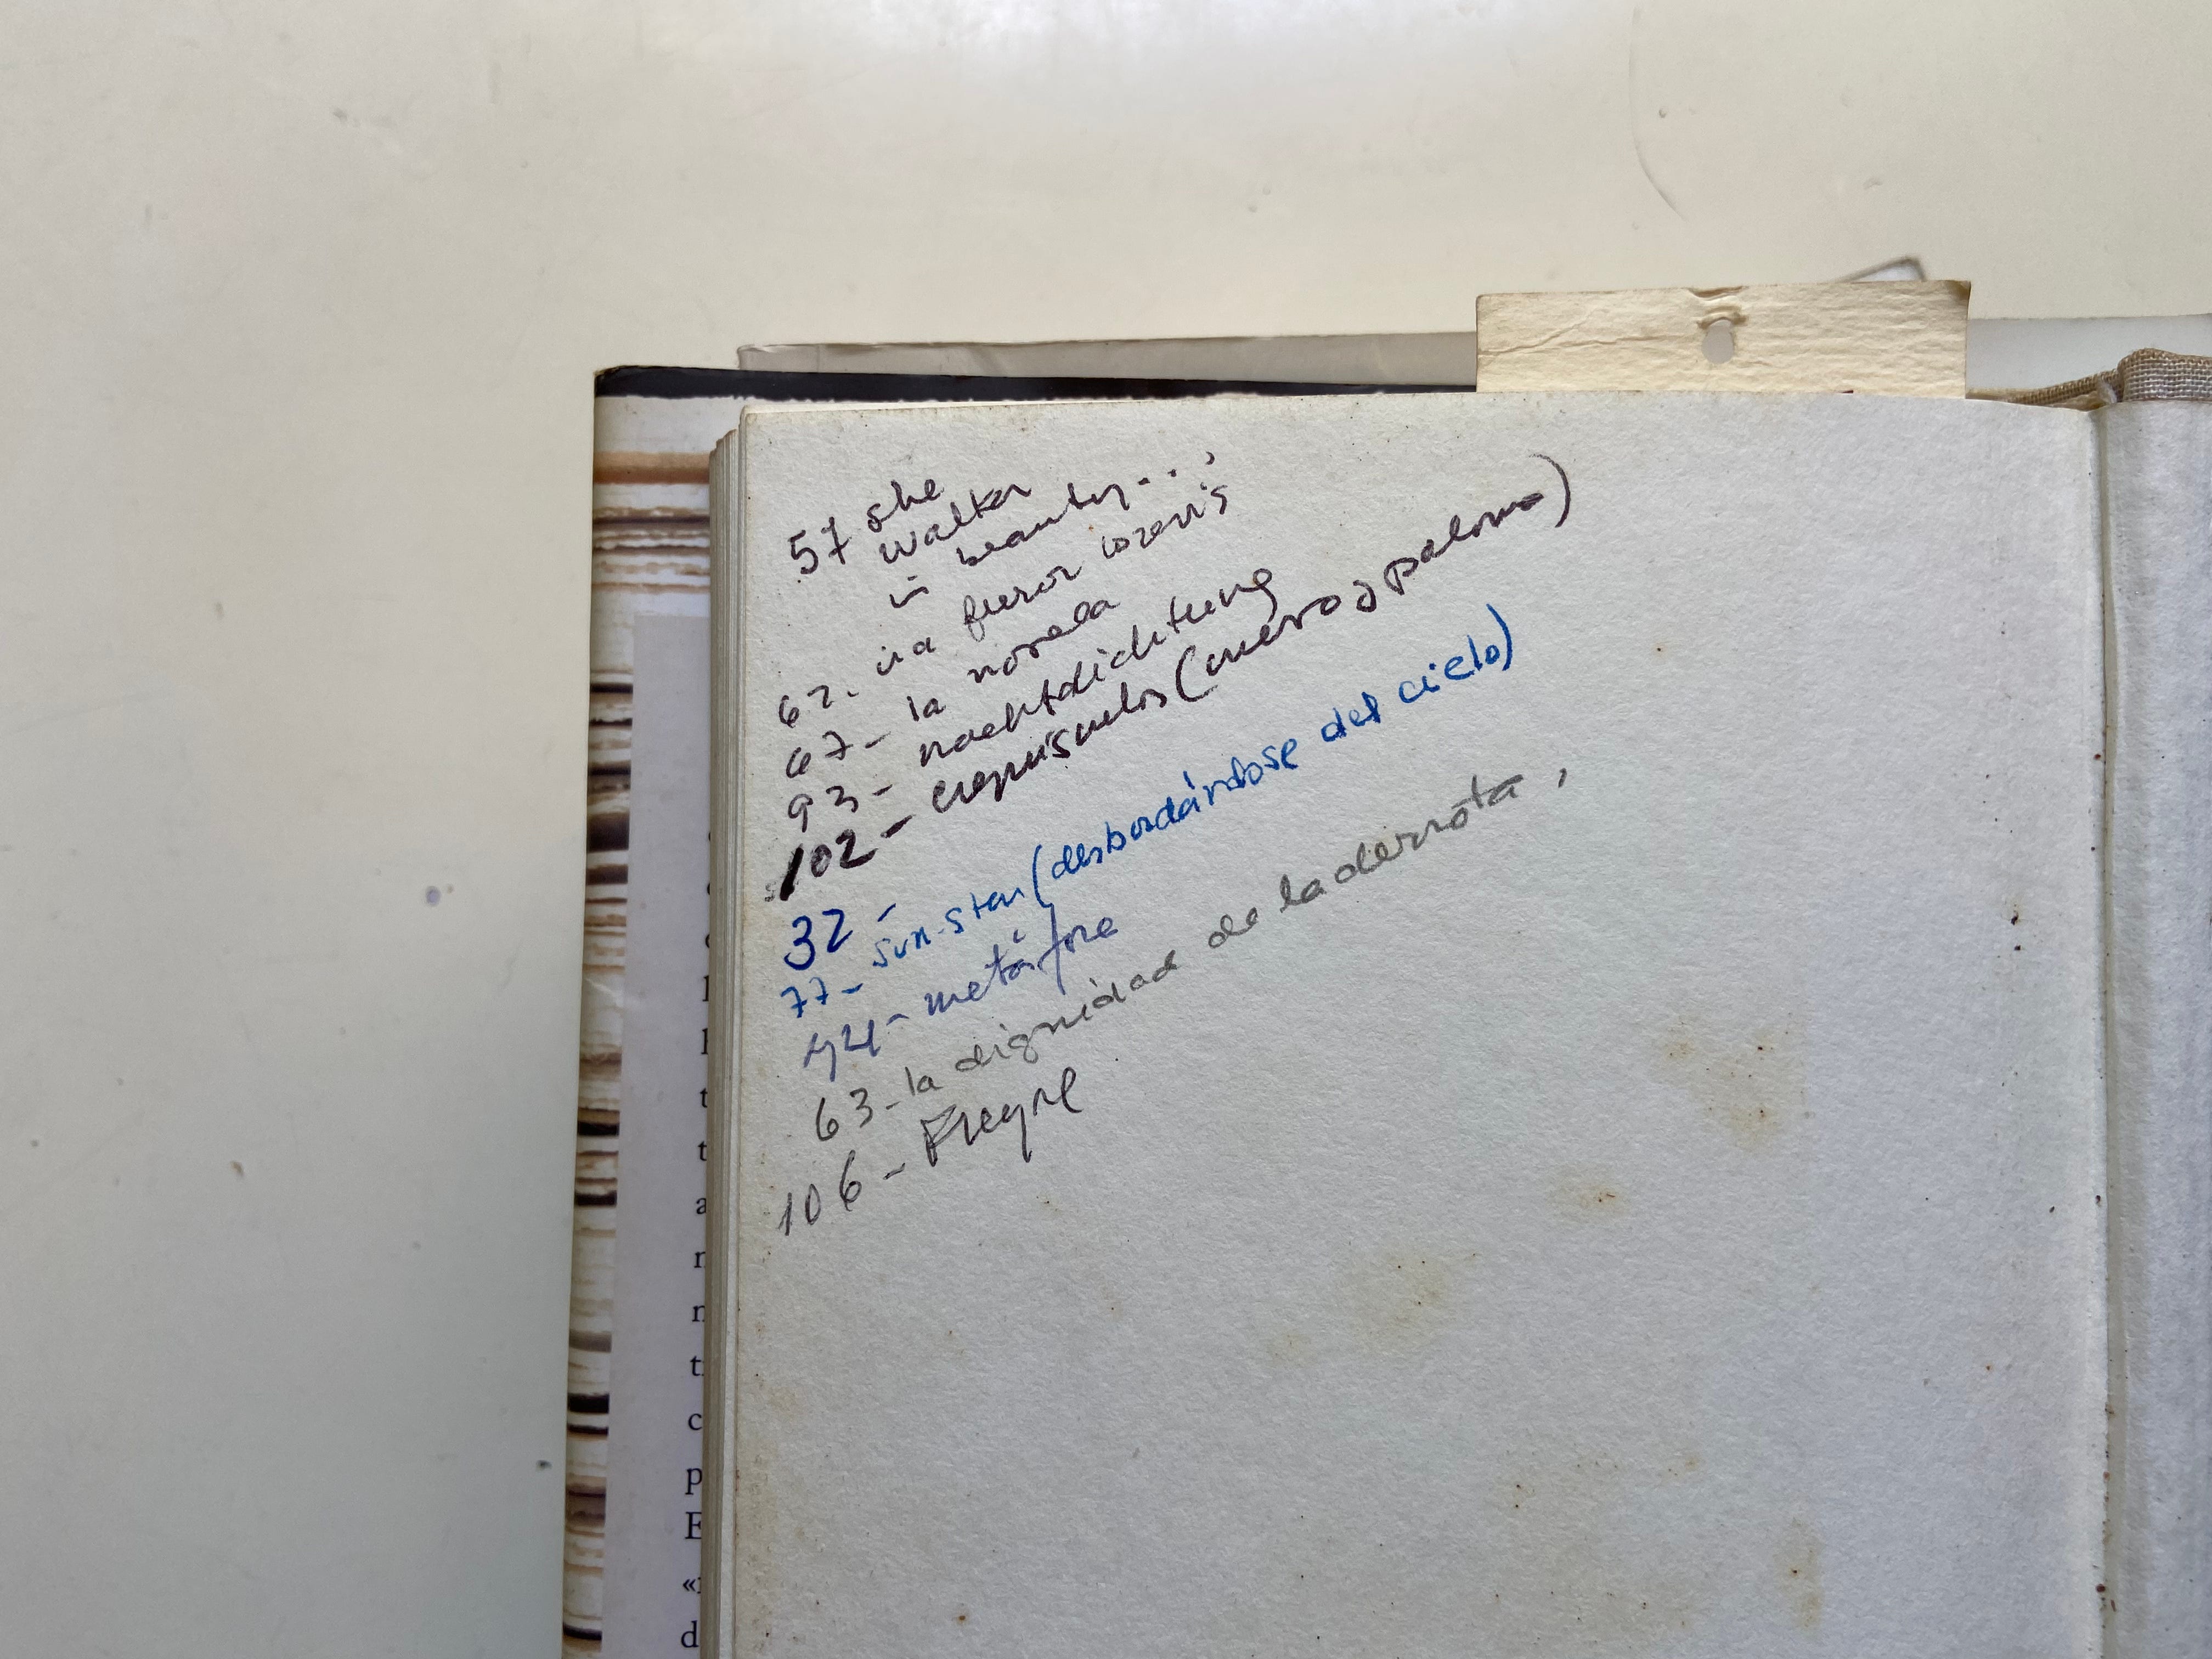 57 she
walks
in beauty...,
62. ira furor brevis
67- la novela
93- nachtdichtung
102- crepúsculos (cuervo a paloma)
32-
77- sun-stan (desbordándose del cielo)
94- metáfora
63- la dignidad de la derrota,
106- Flegre
t
t
a
n
n
t
c
p
E
d